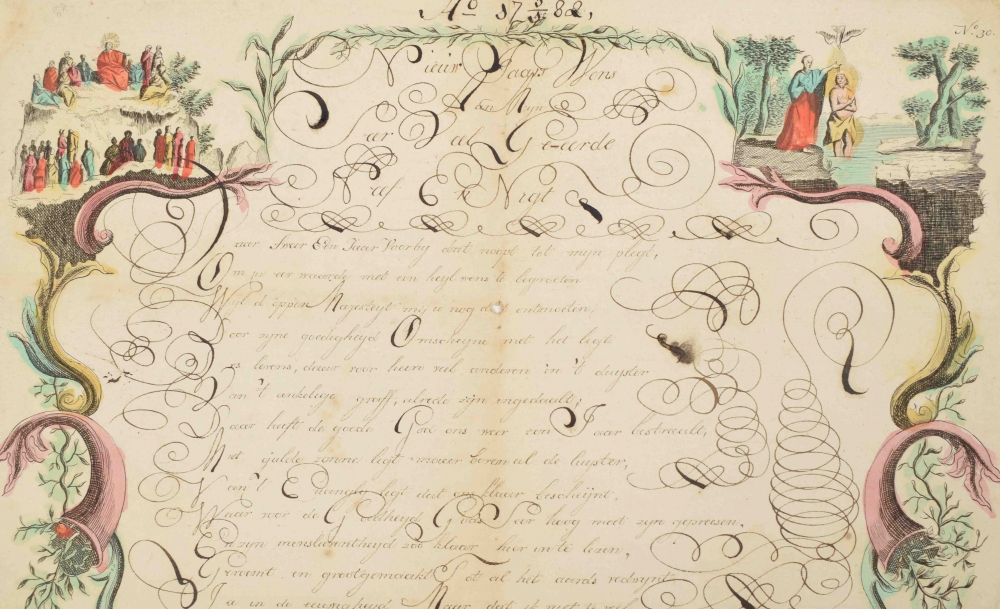 Aº 17 1/1 82,
Nº. 30.
Nieuw Jaars Wens
Aan Mijn
Seer Val Ge-eerde
Neef En Nigt
Daar Sweer Een Jaar Voorby dat noopt tot mijn pligt,
Om je er waardig met een heyl wens te begroeten
Wyl d'opper Majesteyt mij u nog doet ontmoeten,
Door zyne goedigheyd Omscheyne met het ligt
es levens, daar voor heere veel anderen in 't duyster
Van 't akelige graff, alrede zijn ingedaalt;
Maar heeft de goede God ons weer een Jaar bestraalt,
Met gulde zonne ligt maar boven al de luyster,
Van 't Euangely ligt dat ons klaar bescheynt,
Waar voor de Godtheyd Gods Seer hoog moet zyn gepresen,
En zyn menslievendheyd zoo klaar hier in te lesen,
Geroemt en grootgemaakt Tot al het aards verdwynt
Ja in de eeuwigheyd Maar dit is niet te veel